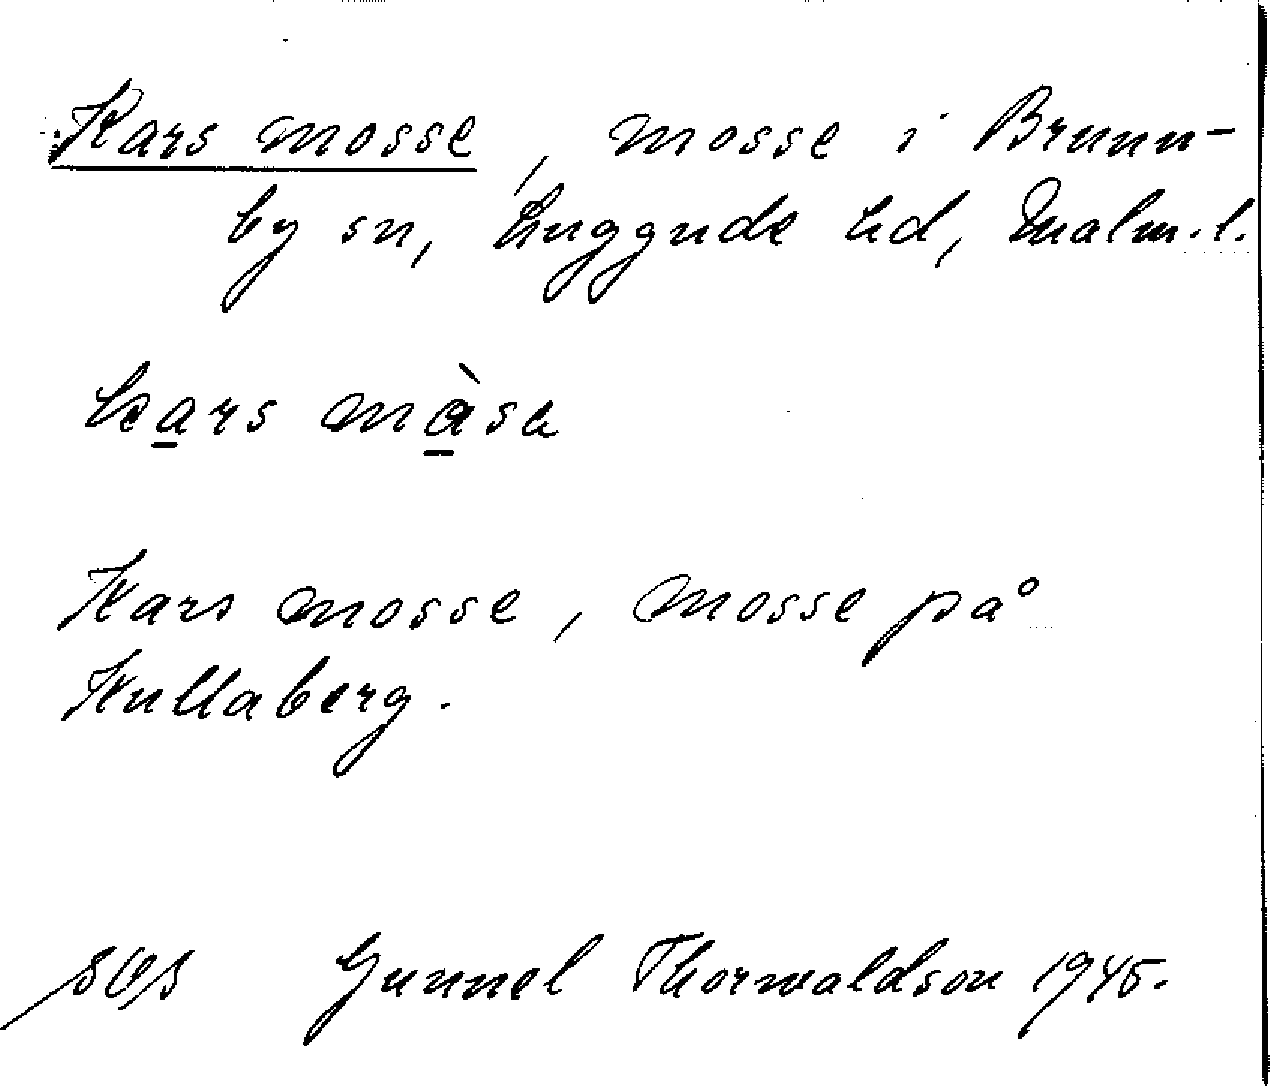 Kars mosse, mosse i Brunn-
by sn, Luggude hd, Malm. l.
kars màsa
Kars mosse, mosse på
Kullaberg.
Gunnel Thorwaldson 1945.